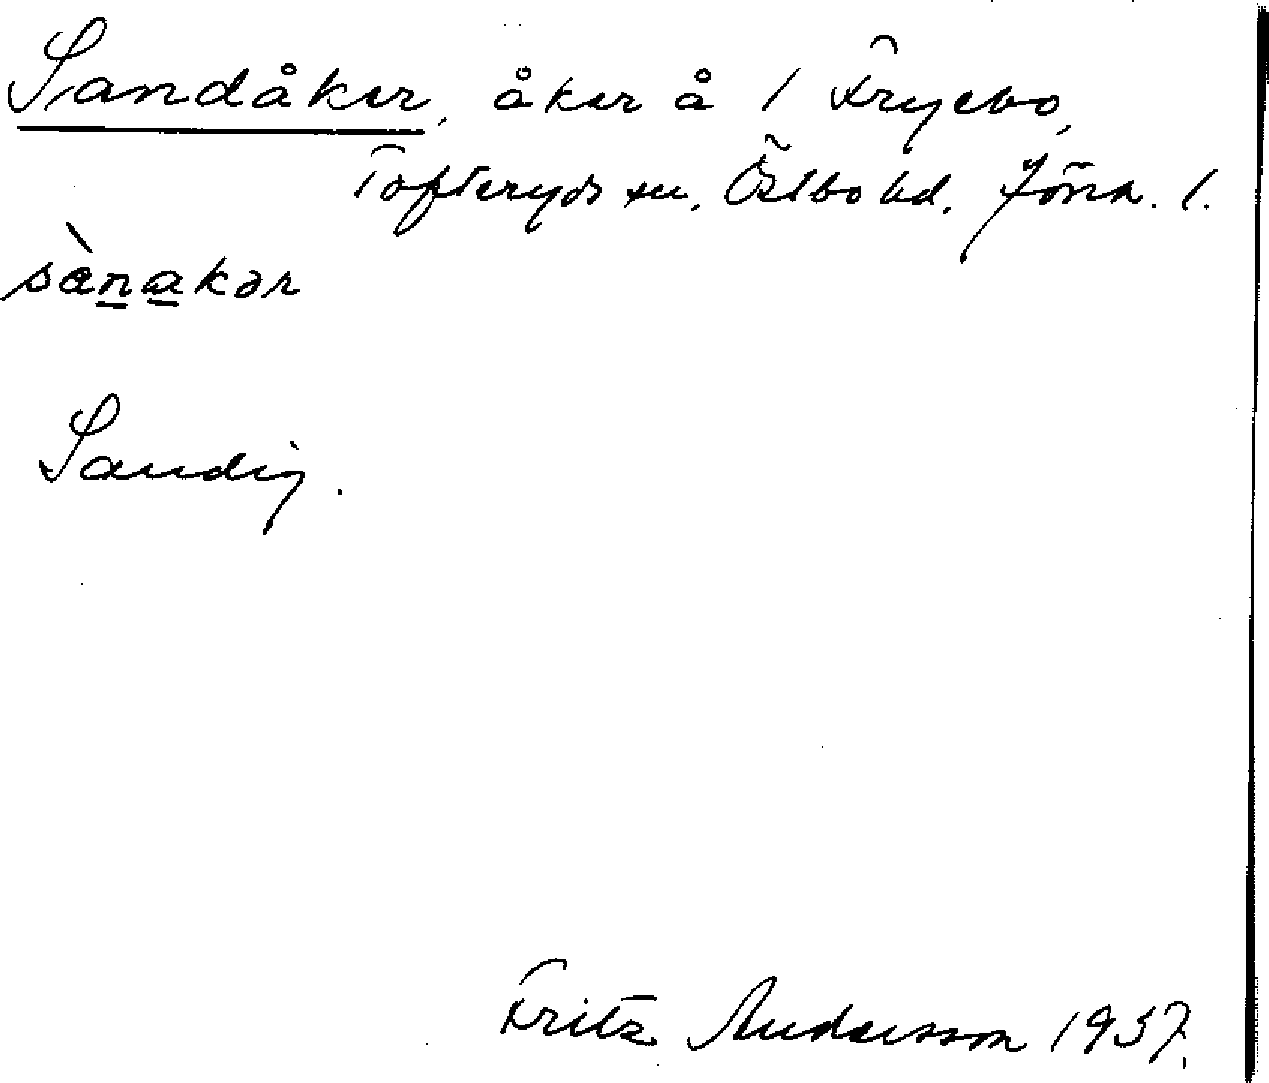 Sandåker, åker å 1 Fryebo,
Tofteryds sn. Östbo hd. Jönk. l.
sànakər
Sandig.
Fritz Andersson 1937.